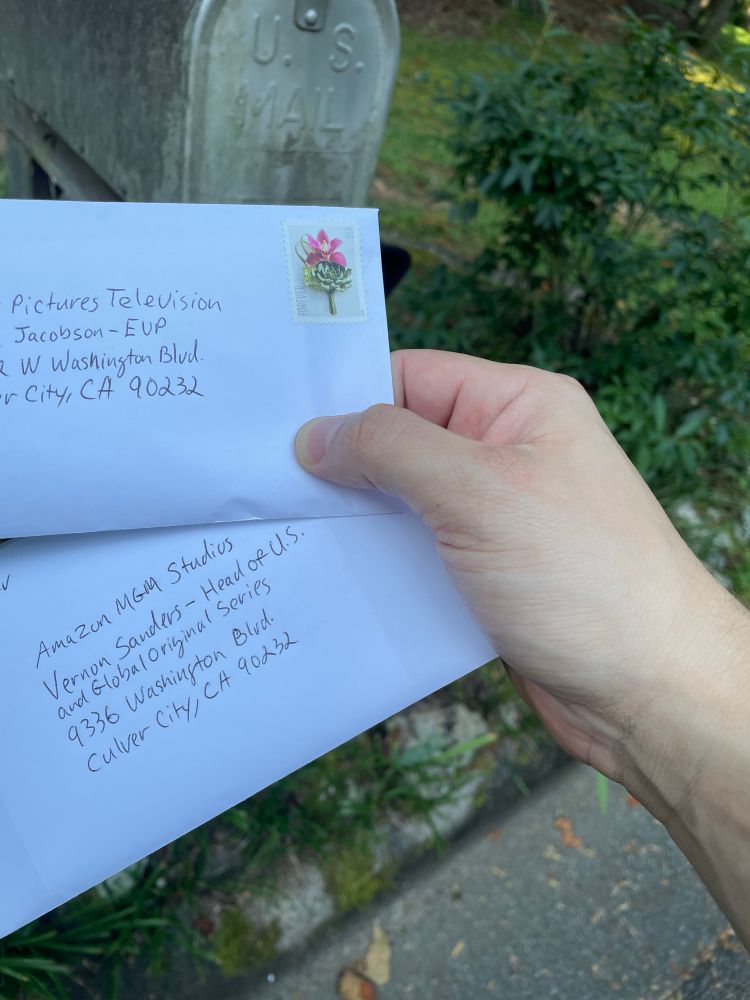 U. S.
MAIL
FOREVER
USA
Pictures Television
Jacobson - EVP
W Washington Blvd.
City, CA 90232
Amazon MGM Studios
Vernon Sanders - Head of U.S.
and Global Original Series
9336 Washington Blvd.
Culver City, CA 90232